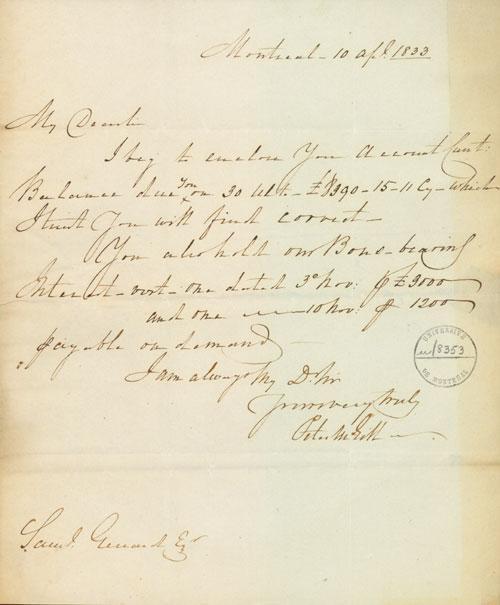 Montreal - 10 apl. 1833
My Dear Sir
I beg to enclose You Account Curt:
Balance due You on 30 Ult - £ 390 - 15 - 11 Cy - which
I trust You will find correct -
You also hold our Bons - bearing
Interest - vizt - one dated 3d Nov: £ 3000
and one 10 Nov: 1200
payable on demand -
I am always My Dr Sir
Yours very truly
Peter McGill
Saml. Gerrard Esqr
UNIVERSITÉ
8353
DE MONTRÉAL